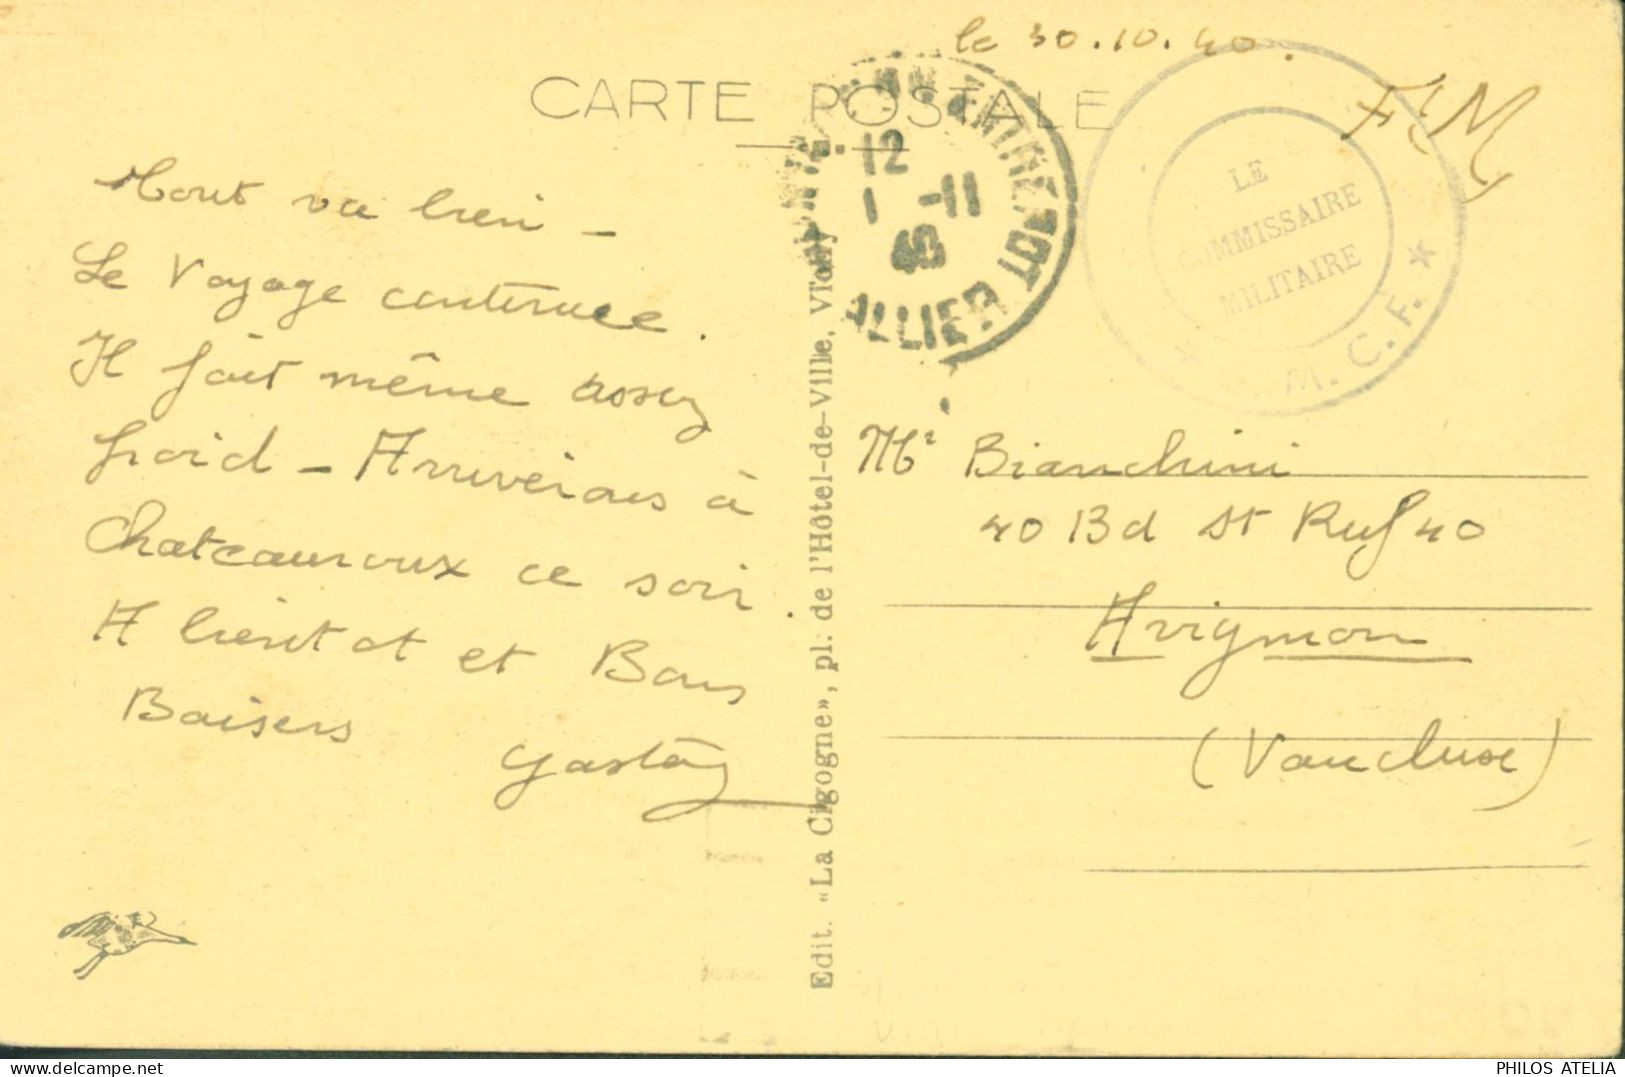 le 30.10.40.
F.M
CARTE POSTALE
12
1 -11
40
ALLIER
LE
COMMISSAIRE
MILITAIRE
M.C.F.
Tout va bien -
Le Voyage continue.
Il fait même assez
froid - Arriverons à
Chateauroux ce soir.
A bientot et Bons
Baisers
Gaston
Edit. «La Cigogne», pl. de l'Hôtel-de-Ville, Vichy
Mr Bianchini
40 Bd St Ruf 40
Avignon
(Vaucluse)
PHILOS ATELIA